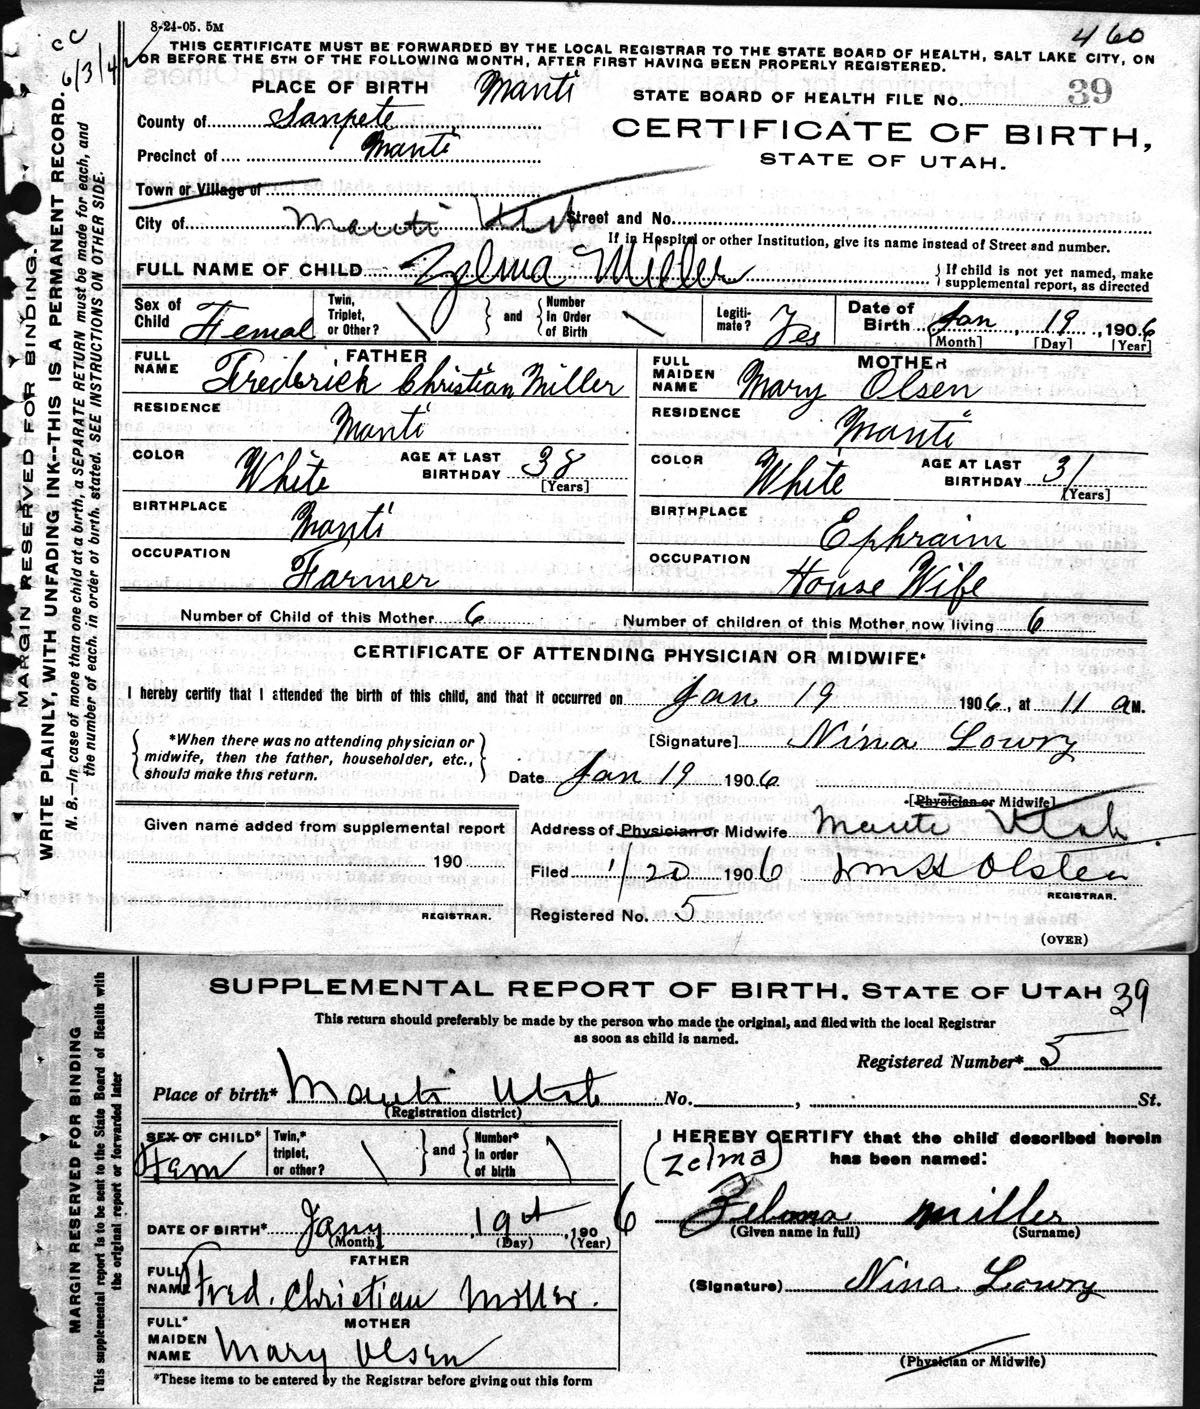 8-24-05. 5M
460
THIS CERTIFICATE MUST BE FORWARDED BY THE LOCAL REGISTRAR TO THE STATE BOARD OF HEALTH, SALT LAKE CITY, ON
OR BEFORE THE 5TH OF THE FOLLOWING MONTH, AFTER FIRST HAVING BEEN PROPERLY REGISTERED.
PLACE OF BIRTH Manti
STATE BOARD OF HEALTH FILE No. 39
County of Sanpete
CERTIFICATE OF BIRTH,
Precinct of Manti
STATE OF UTAH.
Town or Village of
City of Manti Utah Street and No.
If in Hospital or other Institution, give its name instead of Street and number.
FULL NAME OF CHILD Zelma Miller { If child is not yet named, make
supplemental report, as directed
Sex of Child Femal Twin, Triplet, or Other? \ } and { Number In Order of Birth \ Legiti-mate? Yes Date of Birth Jan 19, 1906
[Month] [Day] [Year]
FATHER MOTHER
FULL NAME Frederick Christian Miller FULL MAIDEN NAME Mary Olsen
RESIDENCE Manti RESIDENCE Manti
COLOR White AGE AT LAST BIRTHDAY 38 [Years] COLOR White AGE AT LAST BIRTHDAY 31 [Years]
BIRTHPLACE Manti BIRTHPLACE Ephraim
OCCUPATION Farmer OCCUPATION House Wife
Number of Child of this Mother 6 Number of children of this Mother now living 6
CERTIFICATE OF ATTENDING PHYSICIAN OR MIDWIFE*
I hereby certify that I attended the birth of this child, and that it occurred on Jan 19 1906, at 11 a M.
{ *When there was no attending physician or
midwife, then the father, householder, etc.,
should make this return. }
[Signature] Nina Lowry
Date Jan 19 1906
[Physician or Midwife]
Given name added from supplemental report
190
REGISTRAR.
Address of Physician or Midwife Manti Utah
Filed 1/20 1906 Wm H Olsten
REGISTRAR.
Registered No. 5
(OVER)
MARGIN RESERVED FOR BINDING.
WRITE PLAINLY, WITH UNFADING INK--THIS IS A PERMANENT RECORD.
N. B.--In case of more than one child at a birth, a SEPARATE RETURN must be made for each, and
the number of each, in order of birth, stated. SEE INSTRUCTIONS ON OTHER SIDE.
SUPPLEMENTAL REPORT OF BIRTH, STATE OF UTAH 39
This return should preferably be made by the person who made the original, and filed with the local Registrar
as soon as child is named.
Registered Number* 5
Place of birth* Manti Utah No. , St.
(Registration district)
SEX OF CHILD* Fem Twin,* triplet, or other? \ } and { Number* In order of birth \
DATE OF BIRTH* Jany 19th, 1906
(Month) (Day) (Year)
FATHER
FULL NAME Fred. Christian Miller.
MOTHER
FULL* MAIDEN NAME Mary Olsen
*These items to be entered by the Registrar before giving out this form
I HEREBY CERTIFY that the child described herein
has been named:
(Zelma)
Zelma Miller
(Given name in full) (Surname)
(Signature) Nina Lowry
(Physician or Midwife)
MARGIN RESERVED FOR BINDING
This supplemental report is to be sent to the State Board of Health with
the original report or forwarded later